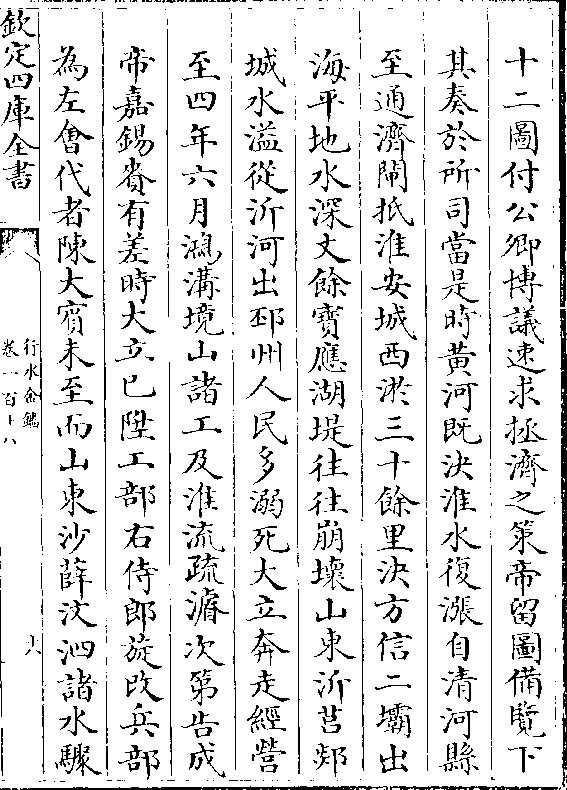 十二圖付公卿博議速求拯濟之策帝留圖備覽下
其奏於所司當是時黄河既決淮水復漲自清河縣
至通濟閘抵淮安城西淤三十餘里決方信二壩出
海平地水深丈餘寶應湖堤往往崩壞山東沂莒郯
城水溢從沂河出邳州人民多溺死大立奔走經營
至四年六月鴻溝境山諸工及淮流疏濬次第告成
帝嘉錫賚有差時大立已陞工部右侍郎旋改兵部
為左會代者陳大賓未至而山東沙薛汶泗諸水驟
欽定四庫全書
行水金鑑
卷一百十八
十八